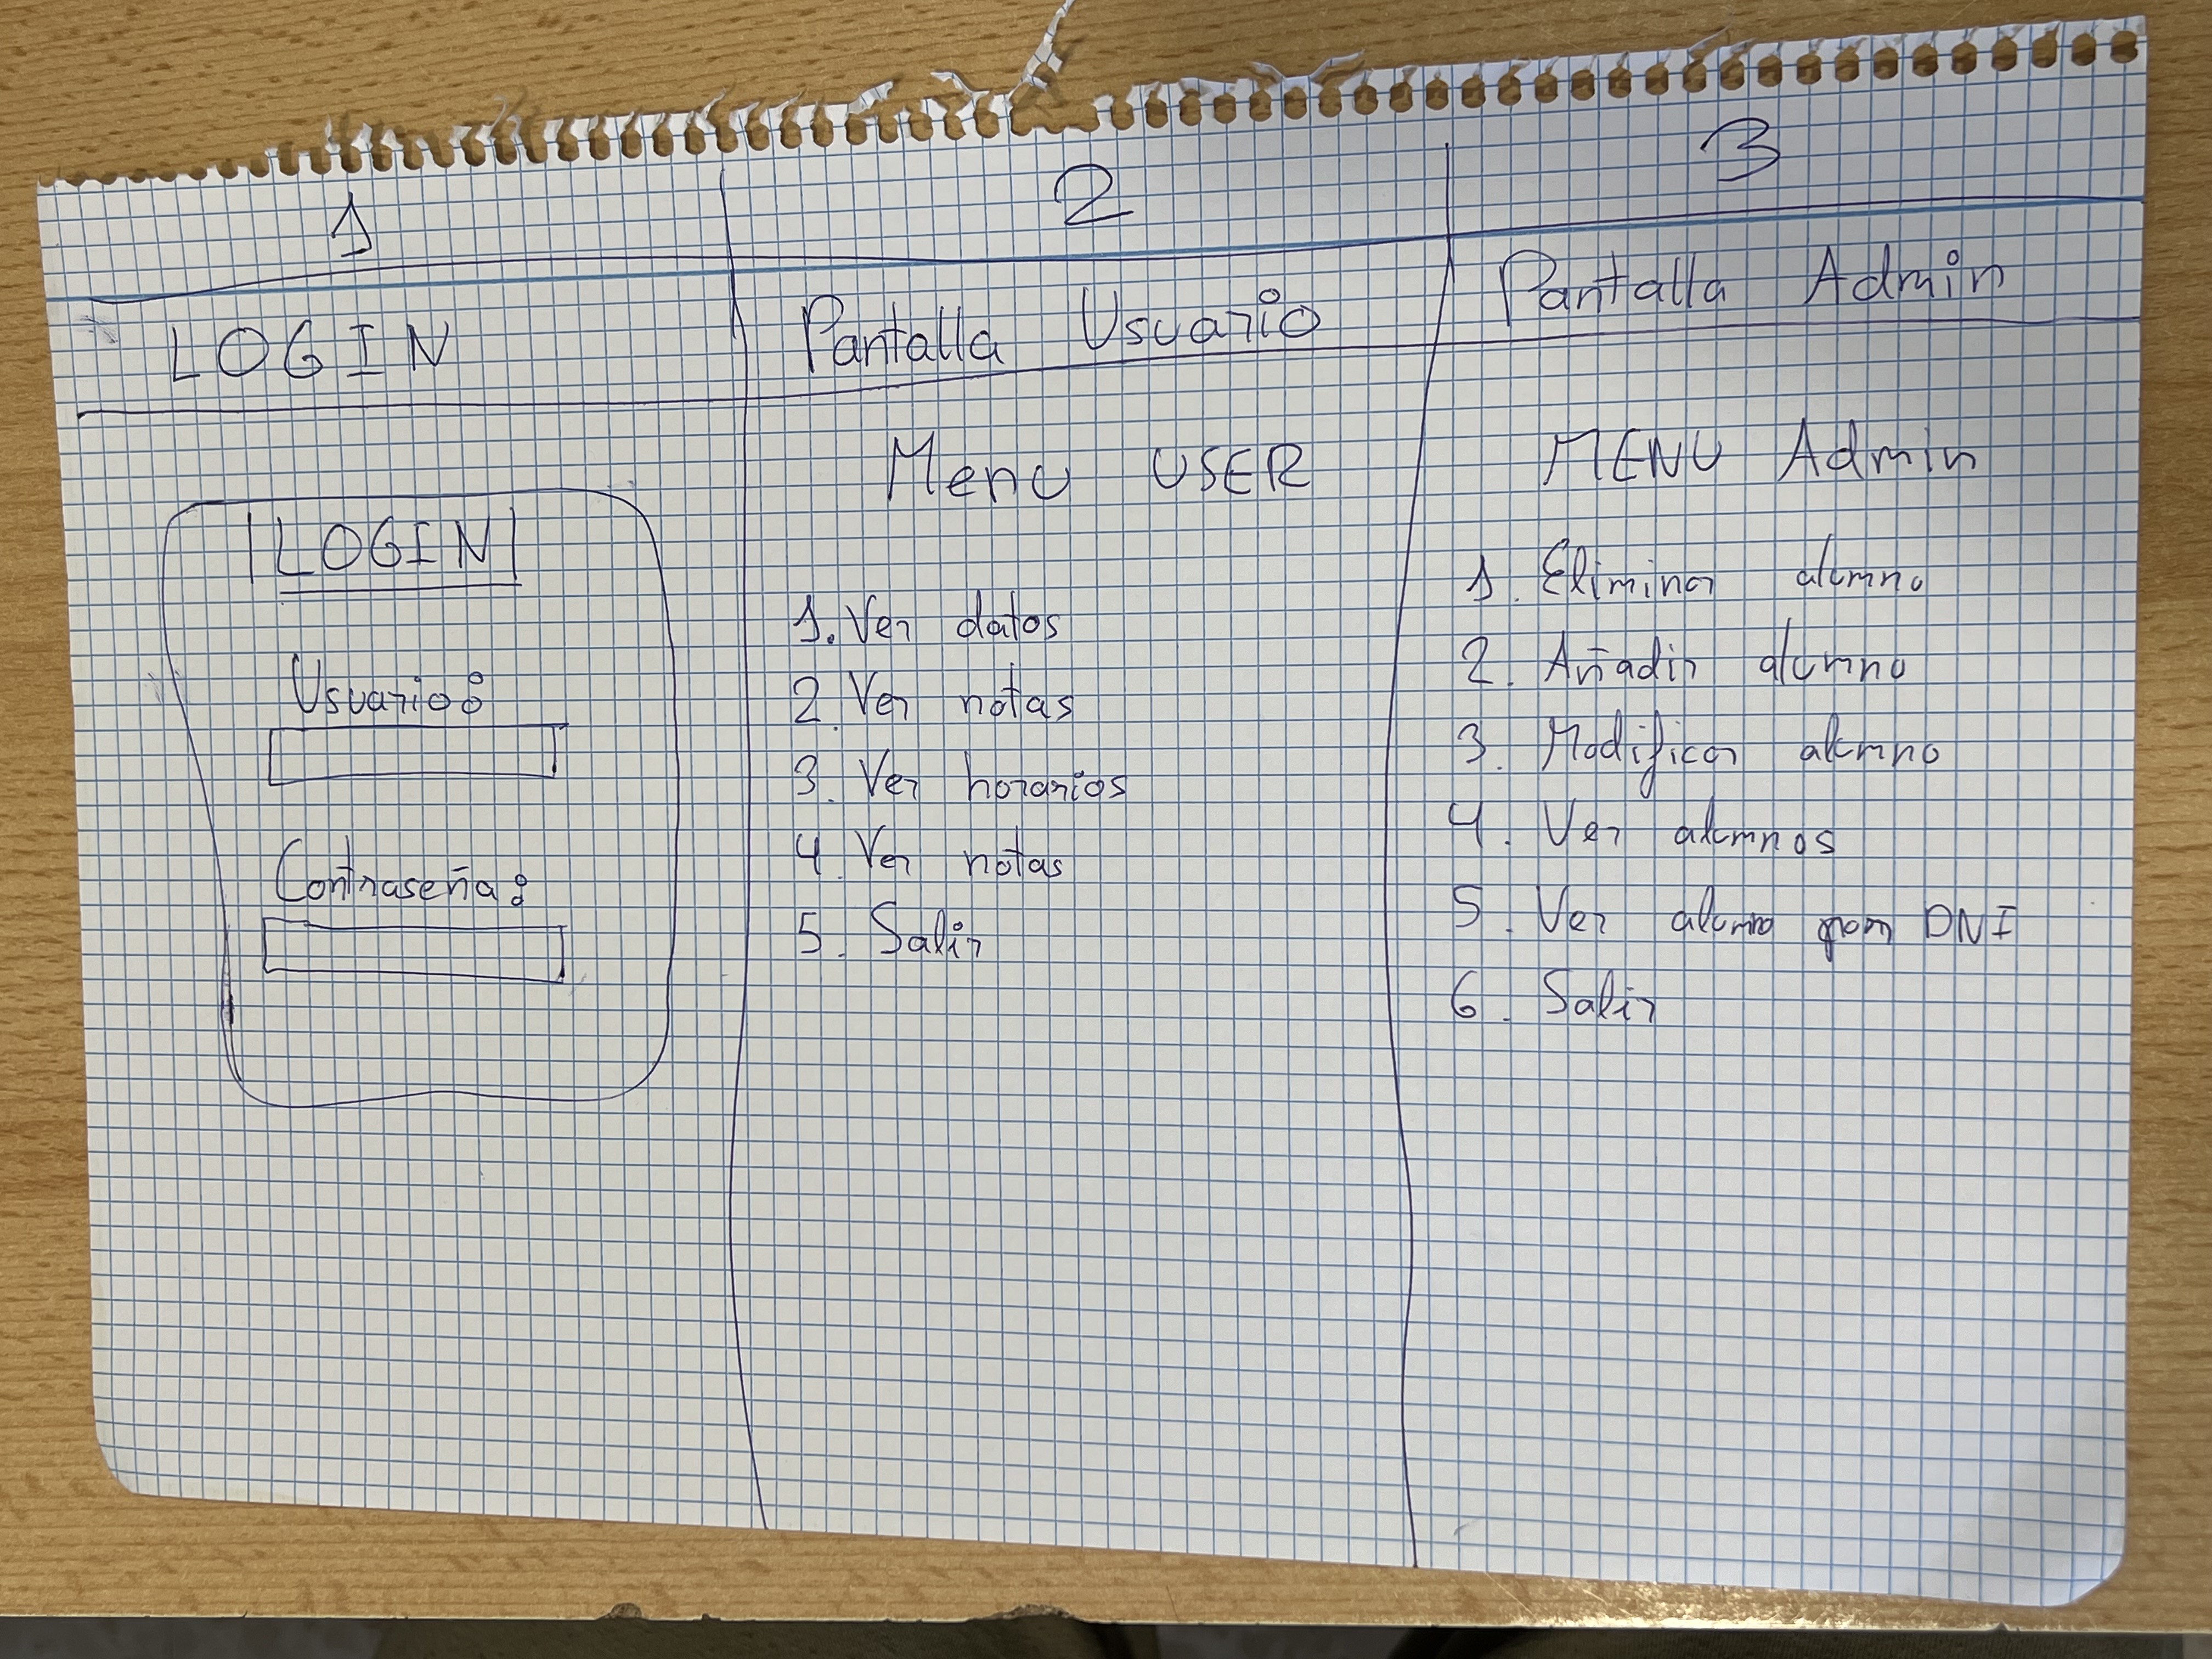 1
LOGIN
LOGIN
Usuario:
Contraseña:
2
Pantalla Usuario
Menu USER
1. Ver datos
2. Ver notas
3. Ver horarios
4. Ver notas
5. Salir
3
Pantalla Admin
MENU Admin
1. Eliminar alumno
2. Añadir alumno
3. Modificar alumno
4. Ver alumnos
5. Ver alumno por DNI
6. Salir